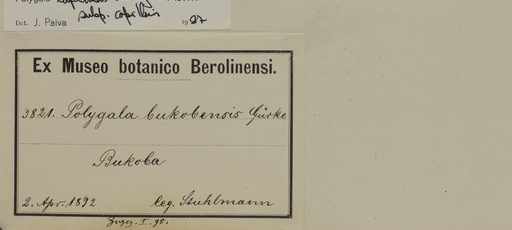 Polygala
subsp. capillaris
Det. J. Paiva 1987
Ex Museo botanico Berolinensi.
3821. Polygala bukobensis Gürke
Bukoba
2. Apr. 1892 leg. Stuhlmann
I. 95.